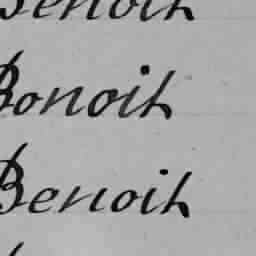 Benoit
Bonoit
Benoit